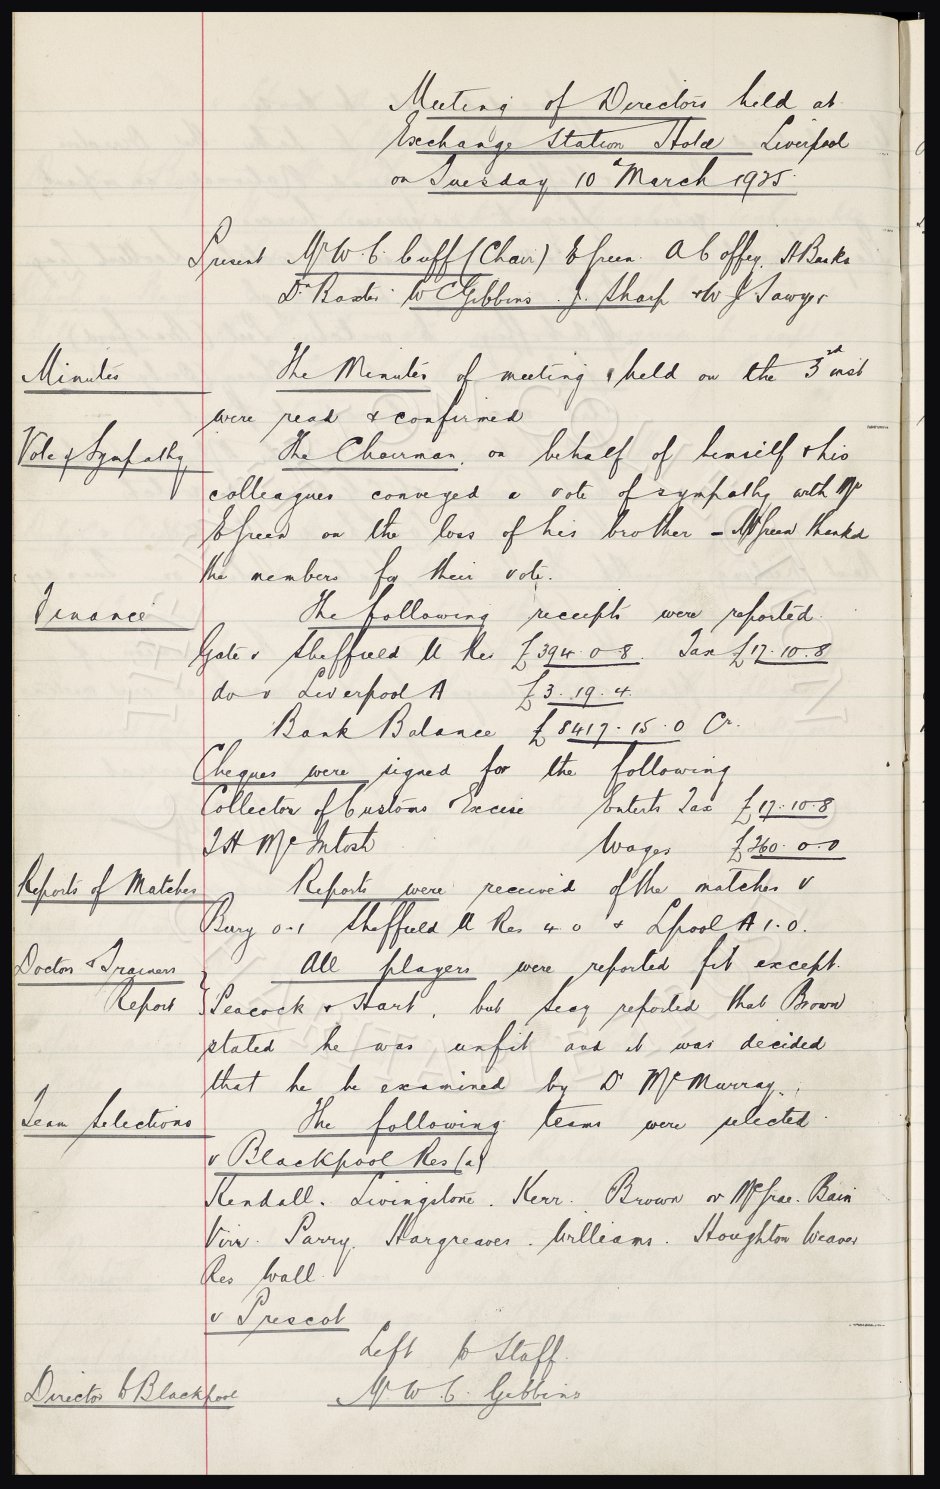 Meeting of Directors held at
Exchange Station Hotel Liverpool
on Tuesday 10th March 1925.
Present Mr W. C. Cuff (Chair) E Green. A Coffey. A Banks
Dr Baxter W C Gibbins. J. Sharp & W J Sawyer
Minutes The Minutes of meeting held on the 3rd inst
were read & confirmed
Vote of Sympathy The Chairman, on behalf of himself & his
colleagues conveyed a vote of sympathy with Mr
E Green on the loss of his brother - Mr Green thanked
the members for their vote.
Finance The following receipts were reported.
Gate v Sheffield U Res £394.0.8. Tax £17.10.8
do v Liverpool A £3.19.4.
Bank Balance £8417.15.0 Cr.
Cheques were signed for the following
Collector of Customs & Excise Enterts Tax £17.10.8
T H McIntosh Wages £260.0.0
Reports of Matches Reports were received of the matches v
Bury 0-1 Sheffield U Res 4-0 & Lpool A 1-0.
Doctors & Trainers All players were reported fit except.
Report Peacock & Hart, but Secy reported that Brown
stated he was unfit and it was decided
that he be examined by Dr McMurray.
Team Selections The following teams were selected
v Blackpool Res (a)
Kendall. Livingstone. Kerr. Brown or McGrae. Bain
Virr. Parry. Hargreaves. Williams. Houghton Weaver
Res Wall.
v Prescot
Left to Staff.
Director to Blackpool Mr W. C. Gibbins